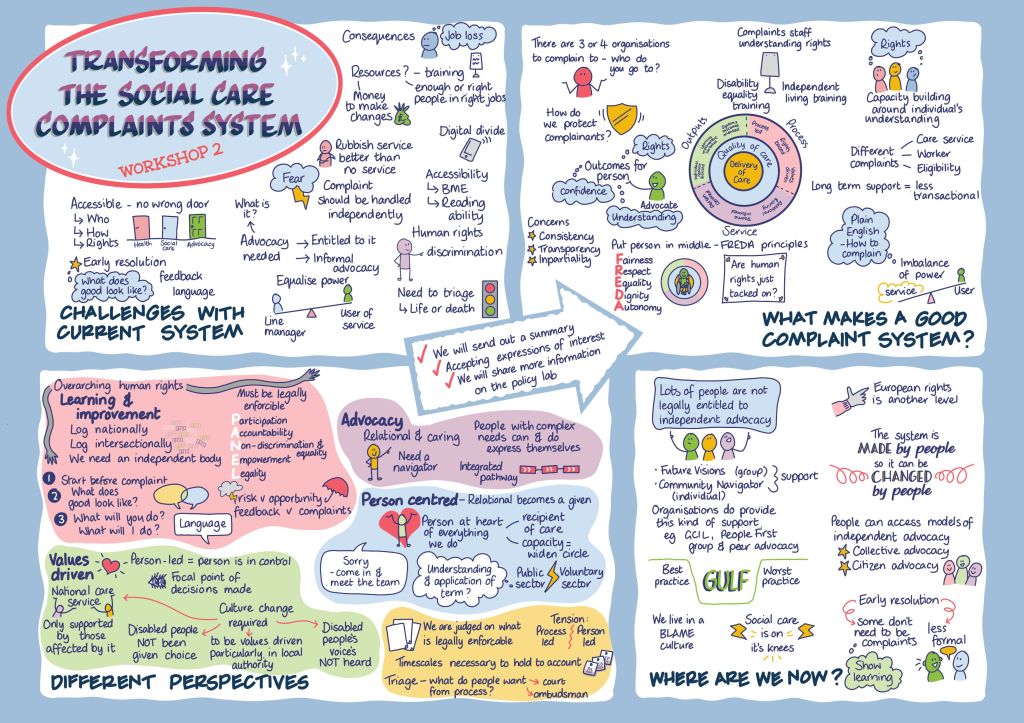 TRANSFORMING
THE SOCIAL CARE
COMPLAINTS SYSTEM
WORKSHOP 2
Consequences
Job loss
Resources? - training
enough or right
people in right jobs
Money
to make
changes
Rubbish service
better than
no service
Digital divide
Fear
Complaint
should be handled
independently
Accessibility
↳ BME
↳ Reading
ability
Accessible - no wrong door
↳ Who
↳ How
↳ Rights
Health
Social
care
Advocacy
What is
it?
Advocacy
needed
→ Entitled to it
→ Informal
advocacy
Human rights
- discrimination
Early resolution
What does
good look like?
feedback
language
Equalise power
Line
manager
User of
service
Need to triage
↳ Life or death
CHALLENGES WITH
CURRENT SYSTEM
There are 3 or 4 organisations
to complain to - who do
you go to?
Complaints staff
understanding rights
Rights
Disability
equality
training
Independent
living training
Capacity building
around individual's
understanding
How do
we protect
complainants?
Rights
Outcomes for
person
confidence
Advocate
Understanding
Outputs
Process
Service
Quality of care
Delivery
of Care
Process
led
Rights
based
Different
complaints
Care service
Worker
Eligibility
Long term support = less
transactional
Concerns
Consistency
Transparency
Impartiality
Put person in middle - FREDA principles
Fairness
Respect
Equality
Dignity
Autonomy
Are human
rights just
tacked on?
Plain
English
- How to
complain
Imbalance
of power
service
User
WHAT MAKES A GOOD
COMPLAINT SYSTEM?
We will send out a summary
Accepting expressions of interest
We will share more information
on the policy lab
Overarching human rights
Learning &
improvement
Log nationally
Log intersectionally
We need an independent body
Must be legally
enforceable
Participation
Accountability
Non-discrimination &
equality
Empowerment
Legality
1 Start before complaint
2 What does
good look like?
3 What will you do?
What will I do?
Language
risk v opportunity
feedback v complaints
Advocacy
Relational & caring
Need a
navigator
People with complex
needs can & do
express themselves
Integrated
pathway
Person centred - Relational becomes a given
Person at heart
of everything
we do
recipient
of care
capacity =
widen circle
Sorry
- come in &
meet the team
Understanding
& application of
term?
Public
sector
Voluntary
sector
Values
driven
- Person-led = person is in control
Focal point of
decisions made
National care
service
Only supported
by those
affected by it
Culture change
required
Disabled people
NOT been
given choice
to be values driven
particularly in local
authority
Disabled
people's
voice's
NOT heard
We are judged on what
is legally enforceable
Tension:
Process
led
Person
led
Timescales necessary to hold to account
Triage - What do people want
from process?
→ court
→ ombudsman
DIFFERENT PERSPECTIVES
Lots of people are not
legally entitled to
independent advocacy
• Future Visions (group)
• Community Navigator
(individual)
support
Organisations do provide
this kind of support
eg GCIL, People First
group & peer advocacy
Best
practice
GULF
Worst
practice
We live in a
BLAME
culture
Social care
is on
it's knees
European rights
is another level
The system is
MADE by people
so it can be
CHANGED
by people
People can access models of
independent advocacy
Collective advocacy
Citizen advocacy
Early resolution
some don't
need to be
complaints
less
formal
Show
learning
WHERE ARE WE NOW?